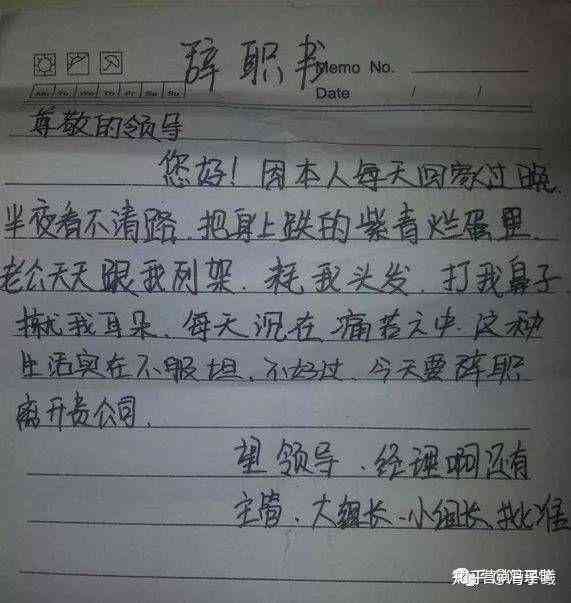 辞职书
Memo No.
Mo Tu We Th Fr Sa Su
Date / /
尊敬的领导
您好！因本人每天回家过晚.
半夜看不清路.把身上跌的紫青烂蛋里.
老公天天跟我列架.耗我头发.打我鼻子.
揪我耳朵.每天沉在痛苦之中.这种
生活实在不服坦.不好过.今天要辞职
离开贵公司.
望领导.经理啊还有
主管.大组长.小组长批准